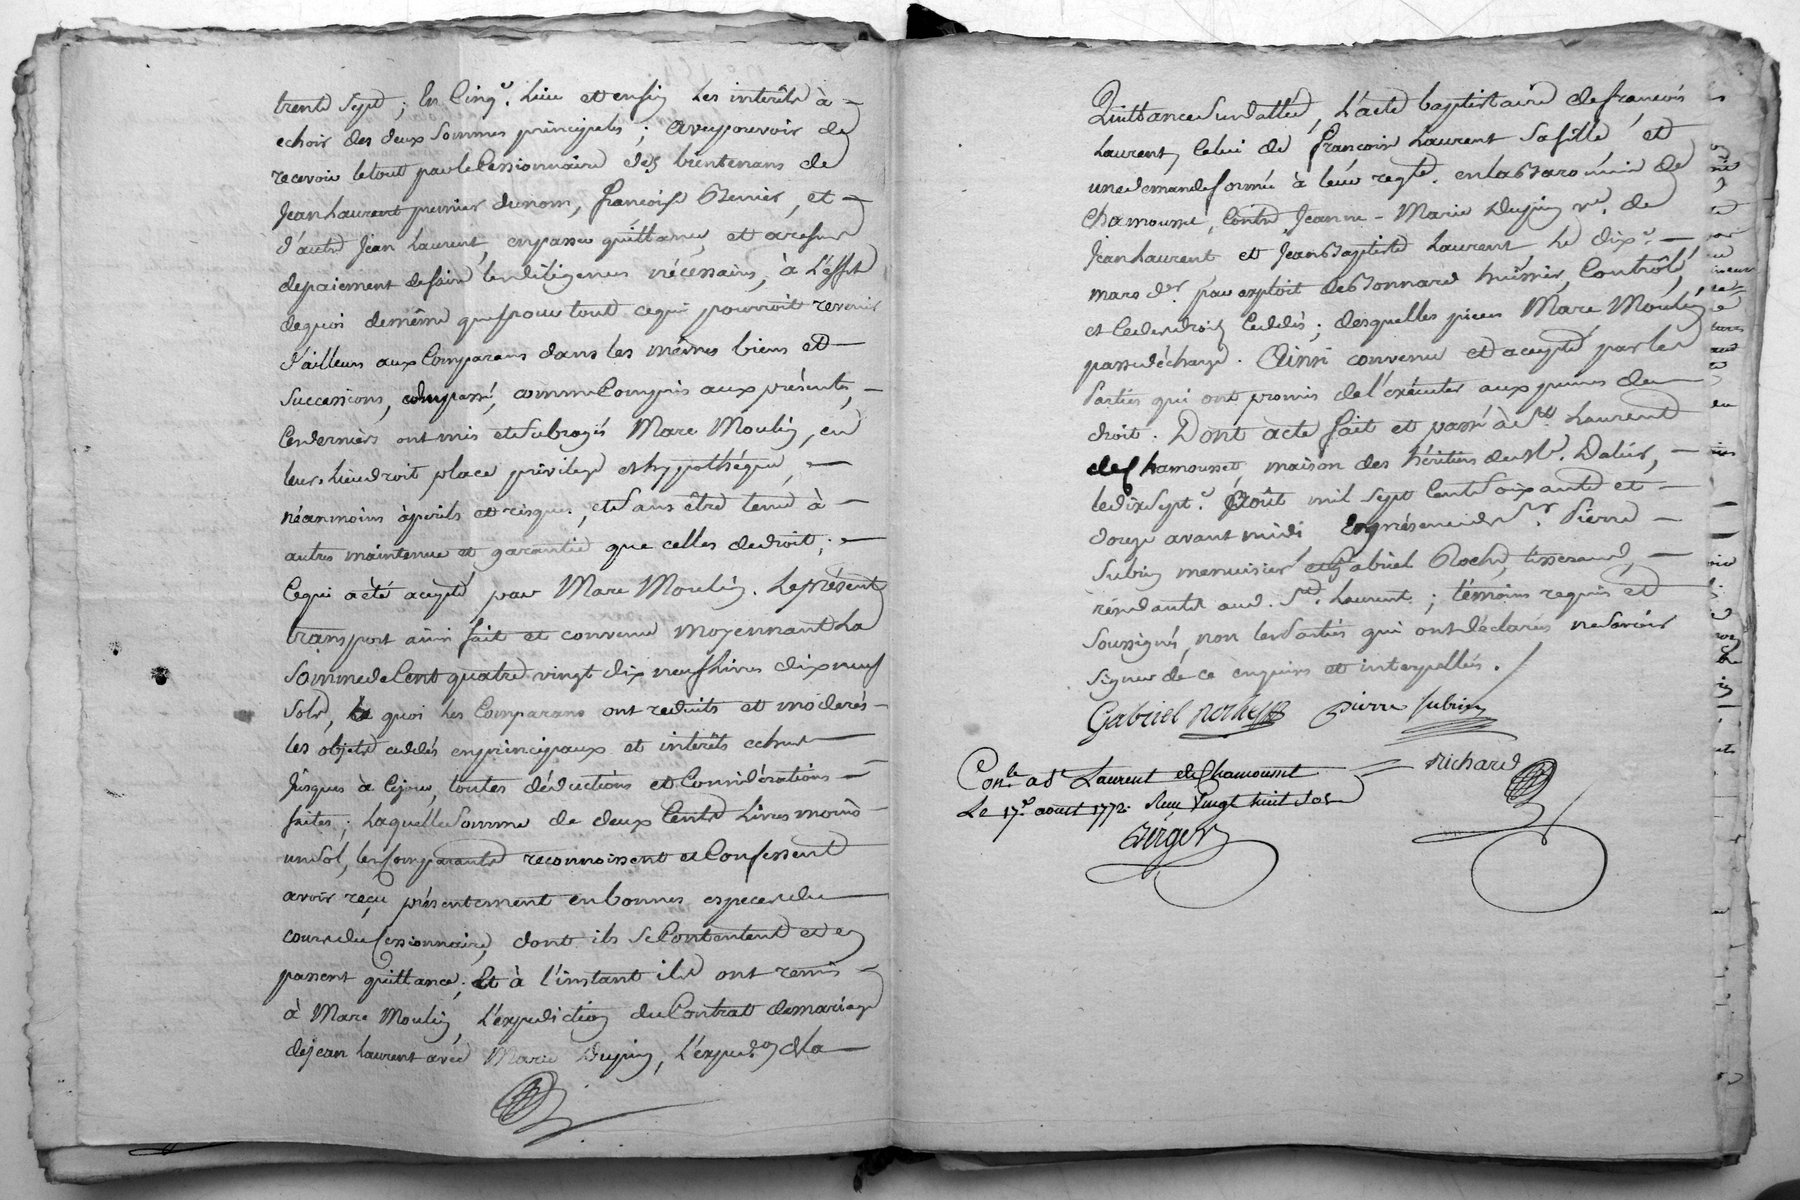 trente sept; en cinq.e lieu et enfin les intérêts à
echoir des deux sommes principales; avec pouvoir de
recevoir le tout par le Cessionnaire des bientenans de
Jean Laurent premier du nom, françois Bernier, et
d'autre Jean Laurent, en passer quittance, et a refus
de paiement de faire les diligences nécessaires, à l'effet
de quoi de même que pour tout ce qui pourroit revenir
d'ailleurs aux Comparans dans les mêmes biens et
successions, comme Compris aux présentes,
Ces derniers ont mis et Subrogés Marc Moulin, en
leurs lieu droit place privilege et hypothéque,
néanmoins à périls et risque, et Sans être tenu à
autres maintenue et garantie que celles de droit;
Ce qui a été accepté par Marc Moulin. Le présent
transport ainsi fait et convenu moyennant La
Somme de Cent quatre vingt dix neuf Livres dix neuf
Sols, à quoi Les Comparans ont reduits et modérés
les objets cédés en principaux et intérêts échus
Jusques à Cejour, toutes déductions et Considérations
faites; Laquelle Somme de deux Cents Livres moins
un Sol, les Comparants reconnoissent et Confessent
avoir reçu présentement en bonnes especes du
cours du Cessionnaire, dont ils Se Contentent et en
passent quittance; Et à l'instant ils ont remis
à Marc Moulin, L'expédiction du Contrat de mariage
de jean Laurent avec Marie Dupin, L'expe.on de la
Quittance Sus dattée, L'acte baptistaire de françois
Laurent, Celui de françoise Laurent Sa fille et
une demande formée à leur reqte. en la Baronnie de
Chamousset, Contre Jeanne-Marie Dupin ve. de
Jean Laurent et Jean Baptiste Laurent Le dix.e
mars d.er par exploit de Bonnard huissier, Contrôlé,
et Ces des droits Cédés; desquelles pieces Marc Moulin
passe décharge. Ainsi convenu et accepté par les
Parties qui ont promis de l'exécuter aux peines de
droit. Dont acte fait et passé à St. Laurent
de Chamousset, maison des héritiers du Sr.
le dix Sept.e Août mil Sept Cent Soixante et
douze avant midi En présence de Sr. Pierre
Subrin menuisier et Gabriel Roche, tisserand,
résidants aud. St. Laurent; témoins requis et
Soussignés, non les Parties qui ont déclarés ne Savoir
signer de ce enquises et interpellées.
Gabriel Roche Pierre Subrin
Richard
Con.lé a St Laurent de Chamousset
Le 17.e aoust 1772. Reçu Vingt huit Sols